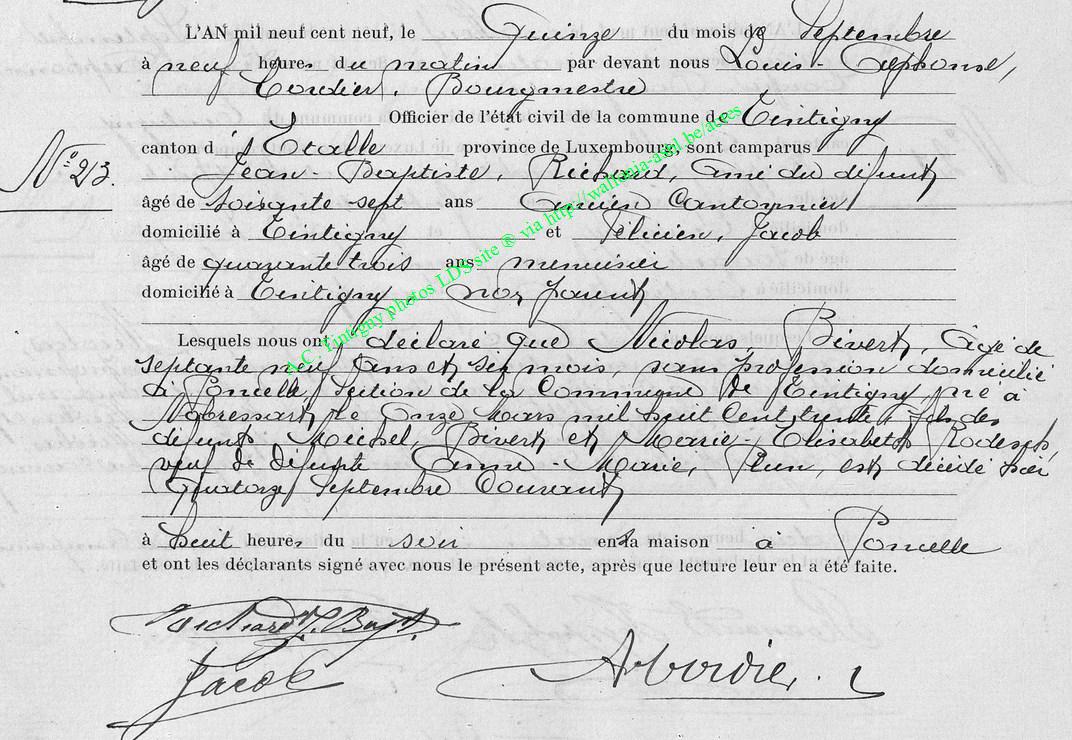 L'AN mil neuf cent neuf, le Quinze du mois de Septembre
à neuf heures du matin par devant nous Louis-Alphonse,
Cordier, Bourgmestre
Officier de l'état civil de la commune de Tintigny
canton d'Etalle province de Luxembourg, sont comparus
N° 23.
Jean-Baptiste, Richard, ami du défunt
âgé de soixante sept ans ancien Cantonnier
domicilié à Tintigny et Félicien, Jacob
âgé de quarante trois ans menuisier
domicilié à Tintigny non parent
Lesquels nous ont déclaré que Nicolas, Bivert, âgé de
septante neuf ans et six mois, sans profession domicilié
à Poncelle, section de la Commune de Tintigny, né à
le onze Mars mil huit cent trente, fils des
défunts Michel, Bivert et Marie-Elisabeth
veuf de défunte Anne-Marie, est décédé hier
Quatorze Septembre Courant
à huit heures du soir en sa maison à Poncelle
et ont les déclarants signé avec nous le présent acte, après que lecture leur en a été faite.
Richard J. Bapt.
Jacob
A Cordier.
A.C. Tintigny photos LDS site ® via http://wallonia-asbl.be/actes